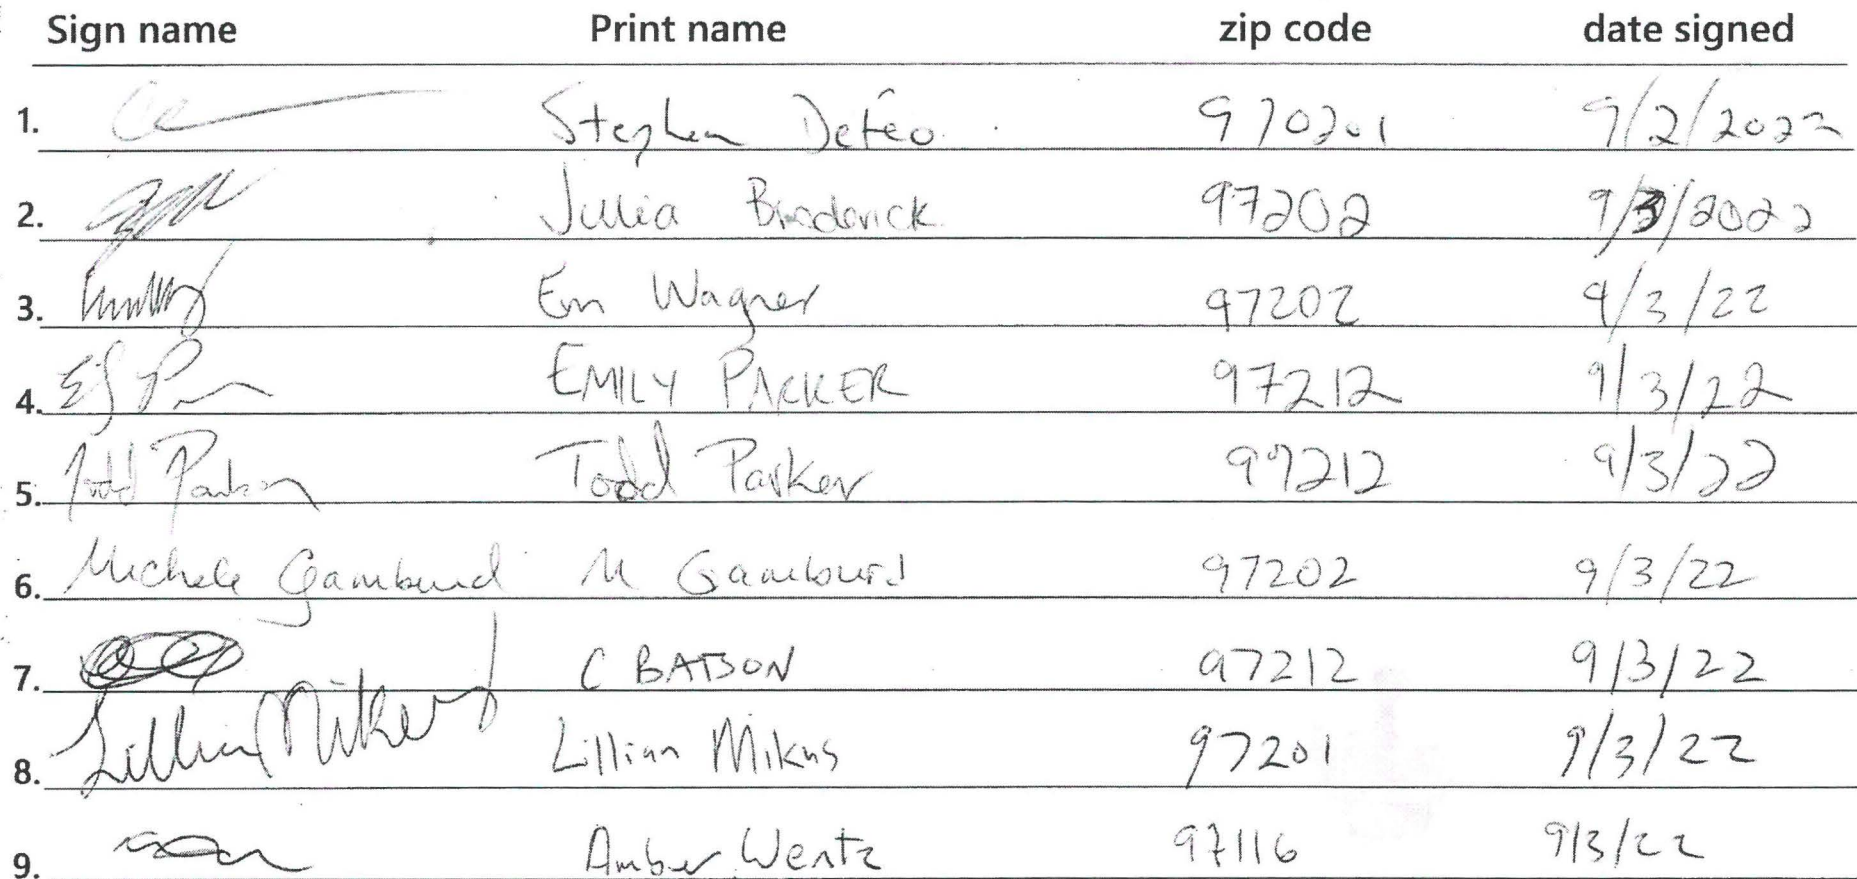 Sign name Print name zip code date signed
1. Stephen Defeo 970201 9/2/2022
2. Julia Broderick 97202 9/3/2022
3. Em Wagner 97202 9/3/22
4. EMILY PARKER 97212 9/3/22
5. Todd Parker Todd Parker 97212 9/3/22
6. Michele Gamburd M Gamburd 97202 9/3/22
7. C BATSON 97212 9/3/22
8. Lillian Mikus Lillian Mikus 97201 9/3/22
9. Amber Wentz 97116 9/3/22